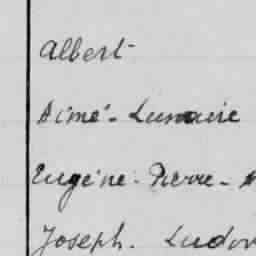 Albert
Aimé - Lumaire
Eugène - Pierre -
Joseph. Ludov